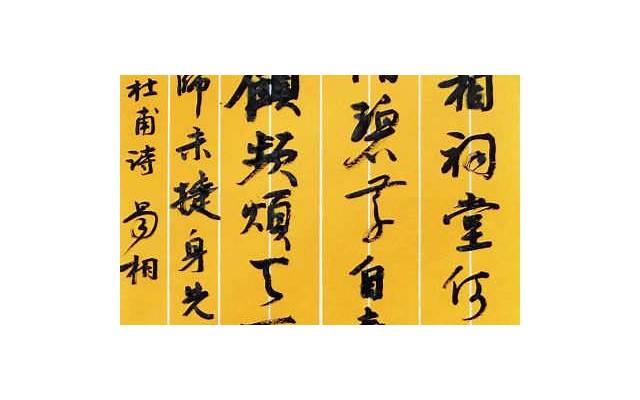 相祠堂何
碧草自春
顧頻煩天下
師未捷身先
杜甫诗 蜀相